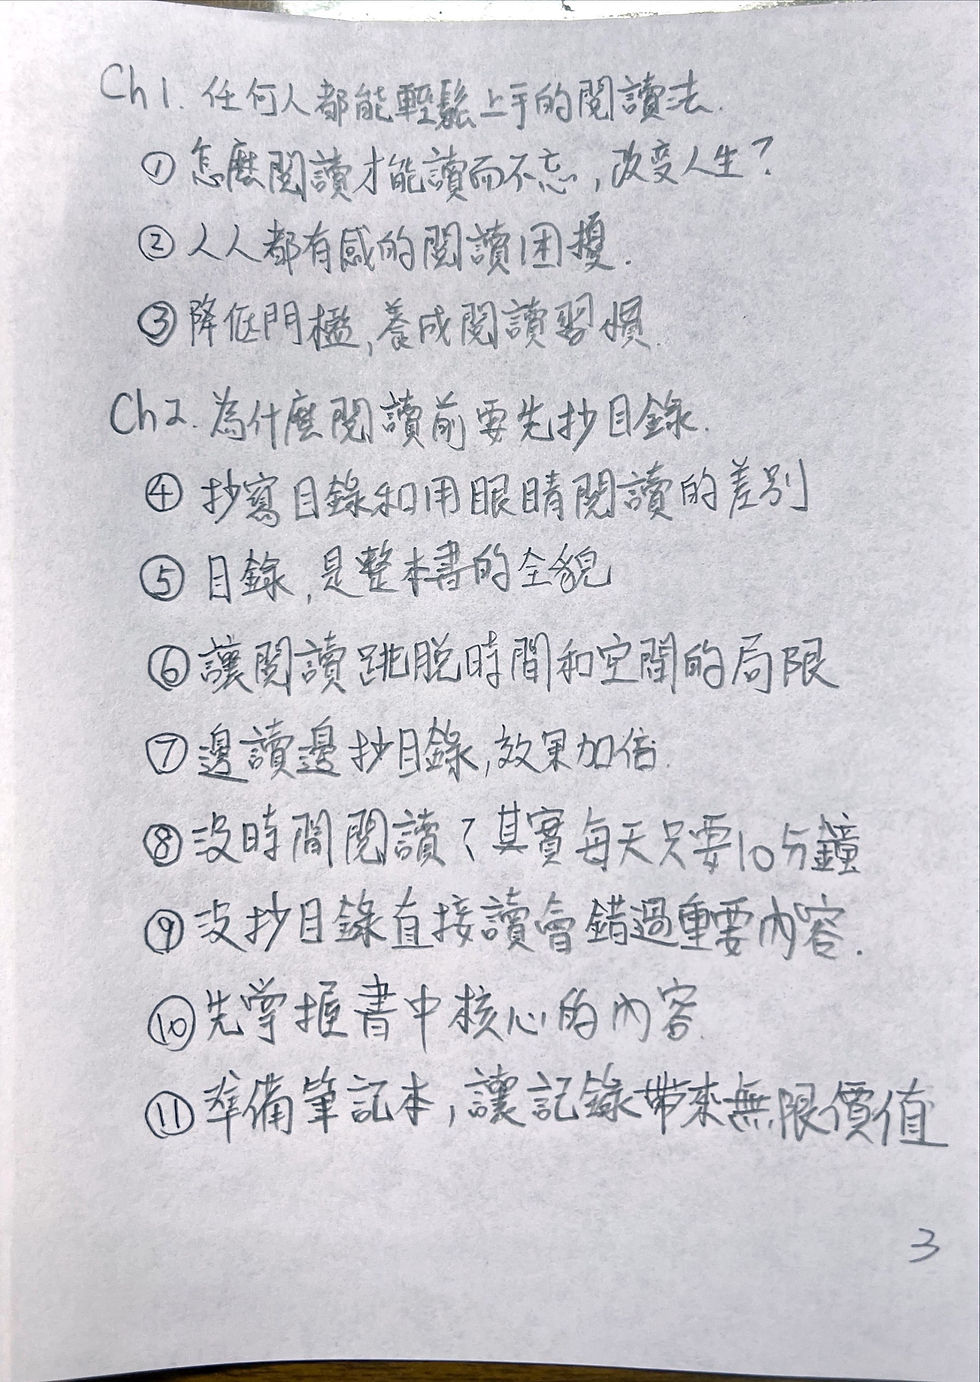 Ch 1. 任何人都能輕鬆上手的閱讀法.
① 怎麼閱讀才能讀而不忘,改变人生?
② 人人都有感的閱讀困擾.
③ 降低門檻,養成閱讀習慣.
Ch 2. 為什麼閱讀前要先抄目錄.
④ 抄寫目錄和用眼睛閱讀的差別
⑤ 目錄,是整本書的全貌
⑥ 讓閱讀跳脫時間和空間的局限
⑦ 邊讀邊抄目錄,效果加倍.
⑧ 沒時間閱讀?其實每天只要10分鐘
⑨ 沒抄目錄直接讀會錯過重要內容.
⑩ 先掌握書中核心的內容.
⑪ 準備筆記本,讓記錄帶來無限價值
3